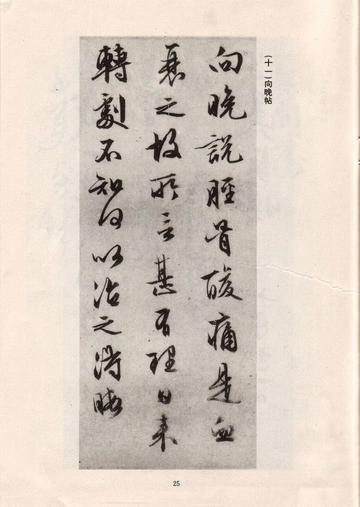 (十一)向晚帖
向晚說脛骨酸痛是血
衰之故所言甚有理日來
轉劇不知何以治之得
25